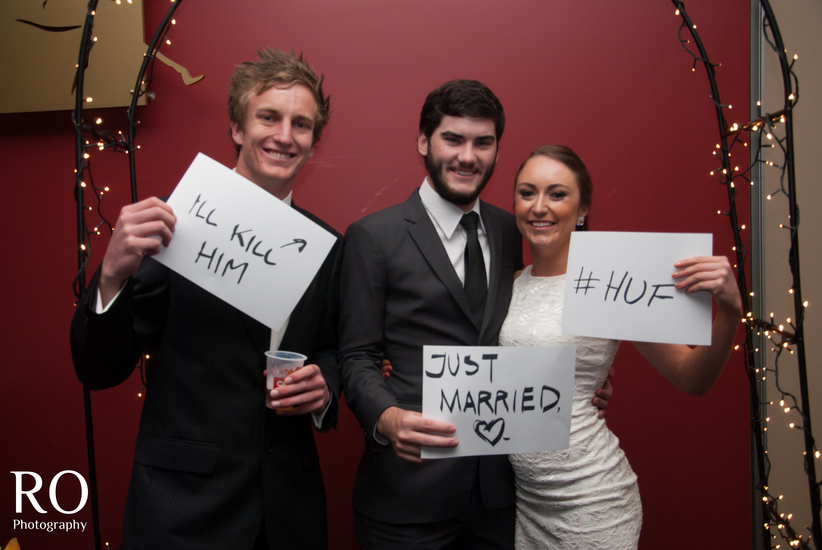 I'LL KILL
HIM
JUST
MARRIED.
#HUF
RO
Photography